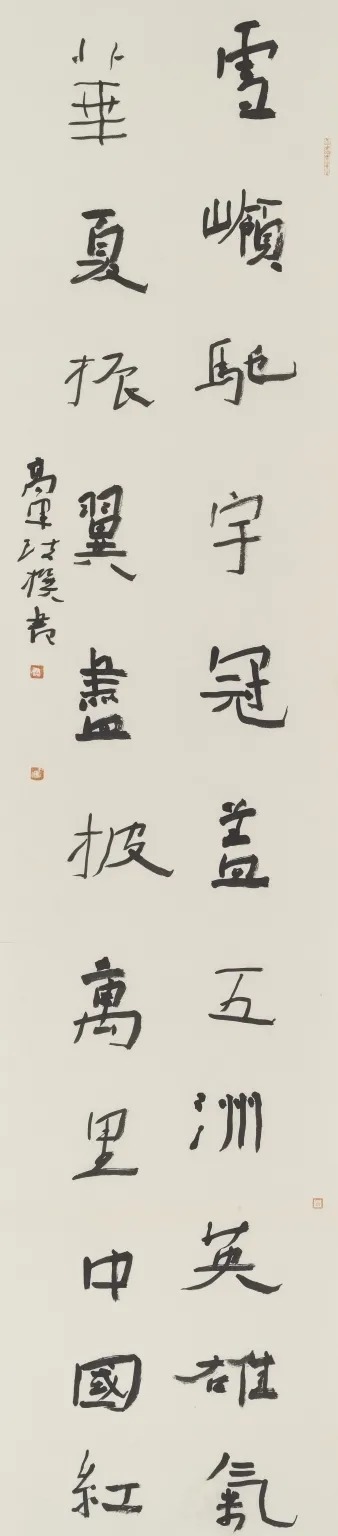 雪馳宇冠蓋五洲英雄氣
華夏振翼盡披萬里中國紅
高軍法撰書